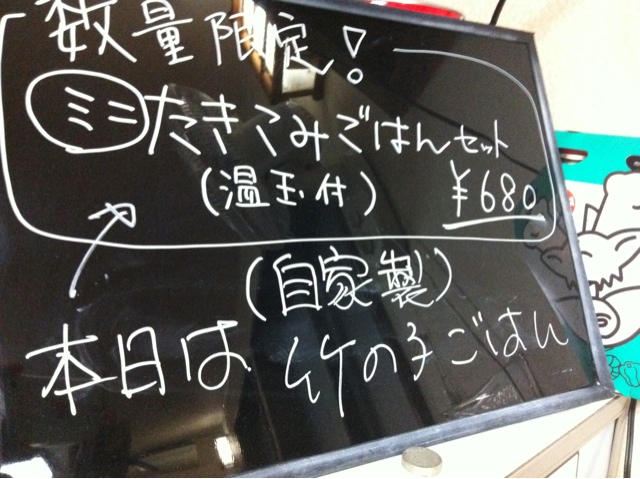 数量限定!
ミニたきこみごはんセット
(温玉付) ¥680
(自家製)
本日は竹の子ごはん